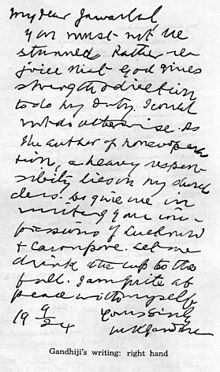 My dear Jawarlal
You must not be
stunned. Rather re
joice that God gives
strength & direction
to do my duty. I could
not do otherwise. As
the author of noncoopera
tion, a heavy respon
sibility lies on my shoul
ders. Do give me in
writing your im
pressions of Lucknow
& Cawnpore. Let me
drink the cup to the
full. I am quite at
peace with myself
19 9/2 4 Yours
MKGandhi
Gandhiji's writing: right hand